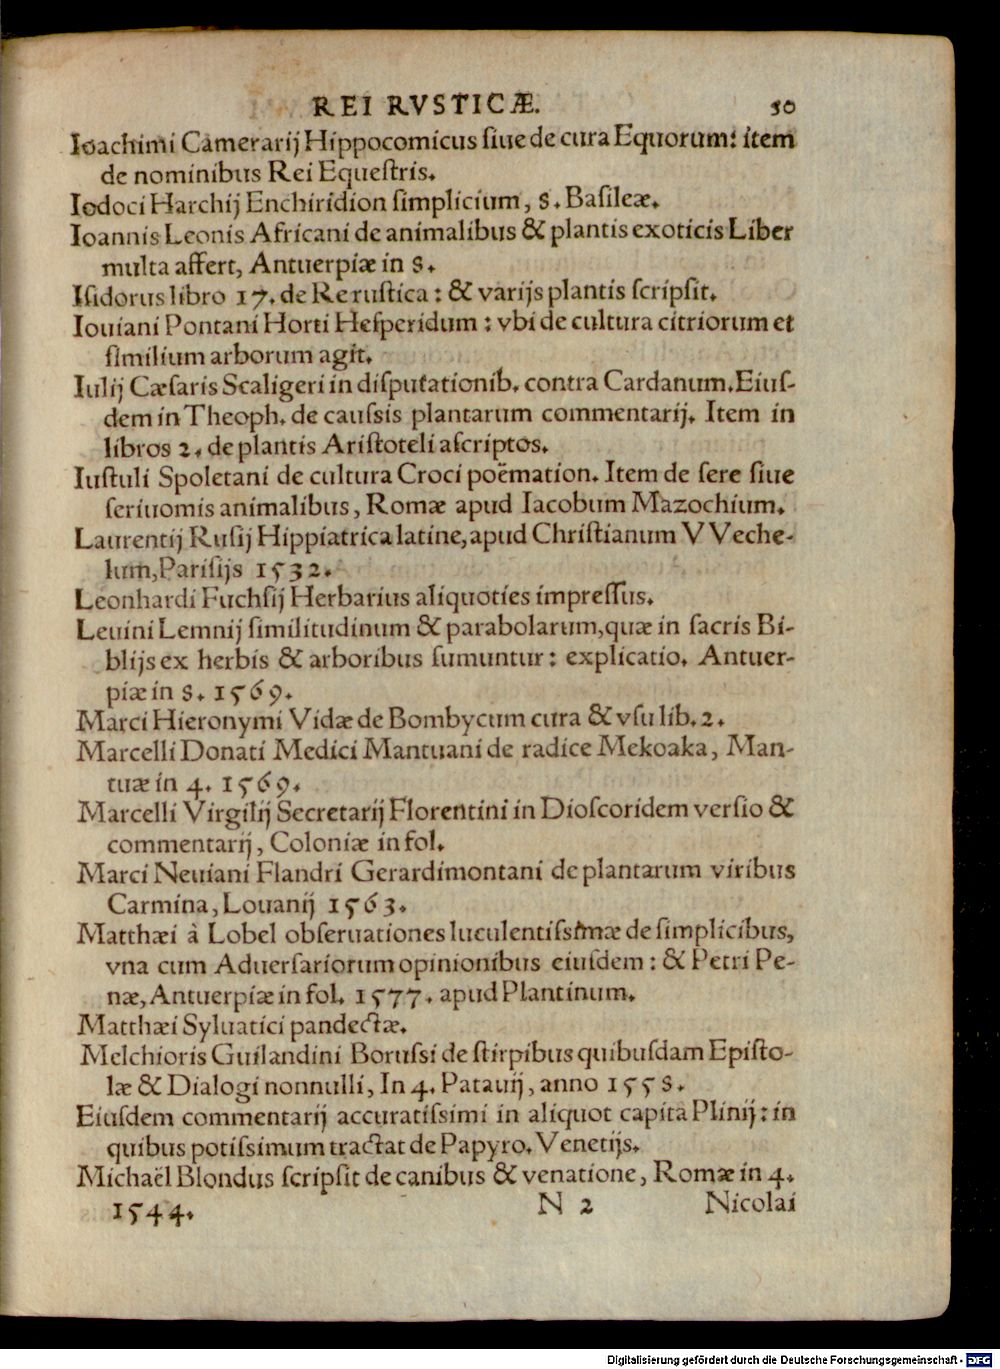 REI RVSTICÆ. 50
Ioachimi Camerarij Hippocomicus ſiue de cura Equorum: item
de nominibus Rei Equeſtris.
Iodoci Harchij Enchiridion ſimplicium, 8. Baſileæ.
Ioannis Leonis Africani de animalibus & plantis exoticis Liber
multa affert, Antuerpiæ in 8.
Iſidorus libro 17. de Re ruſtica: & varijs plantis ſcripſit.
Iouiani Pontani Horti Heſperidum: vbi de cultura citriorum et
ſimilium arborum agit.
Iulij Cæſaris Scaligeri in diſputationib. contra Cardanum. Eiuſ-
dem in Theoph. de cauſsis plantarum commentarij. Item in
libros 2. de plantis Ariſtoteli aſcriptos.
Iuſtuli Spoletani de cultura Croci poëmation. Item de ſere ſiue
ſeriuomis animalibus, Romæ apud Iacobum Mazochium.
Laurentij Ruſij Hippiatrica latine, apud Chriſtianum VVeche-
lum, Pariſijs 1532.
Leonhardi Fuchſij Herbarius aliquoties impreſſus.
Leuini Lemnij ſimilitudinum & parabolarum, quæ in ſacris Bi-
blijs ex herbis & arboribus ſumuntur: explicatio. Antuer-
piæ in 8. 1569.
Marci Hieronymi Vidæ de Bombycum cura & vſu lib. 2.
Marcelli Donati Medici Mantuani de radice Mekoaka, Man-
tuæ in 4. 1569.
Marcelli Virgilij Secretarij Florentini in Dioſcoridem verſio &
commentarij, Coloniæ in fol.
Marci Neuiani Flandri Gerardimontani de plantarum viribus
Carmina, Louanij 1563.
Matthæi à Lobel obſeruationes luculentiſsimæ de ſimplicibus,
vna cum Aduerſariorum opinionibus eiuſdem: & Petri Pe-
næ, Antuerpiæ in fol. 1577. apud Plantinum.
Matthæi Syluatici pandectæ.
Melchioris Guilandini Boruſsi de ſtirpibus quibuſdam Epiſto-
læ & Dialogi nonnulli, In 4. Patauij, anno 1558.
Eiuſdem commentarij accuratiſsimi in aliquot capita Plinij: in
quibus potiſsimum tractat de Papyro. Venetijs.
Michaël Blondus ſcripſit de canibus & venatione, Romæ in 4.
1544. N 2 Nicolai
Digitalisierung gefördert durch die Deutsche Forschungsgemeinschaft - DFG